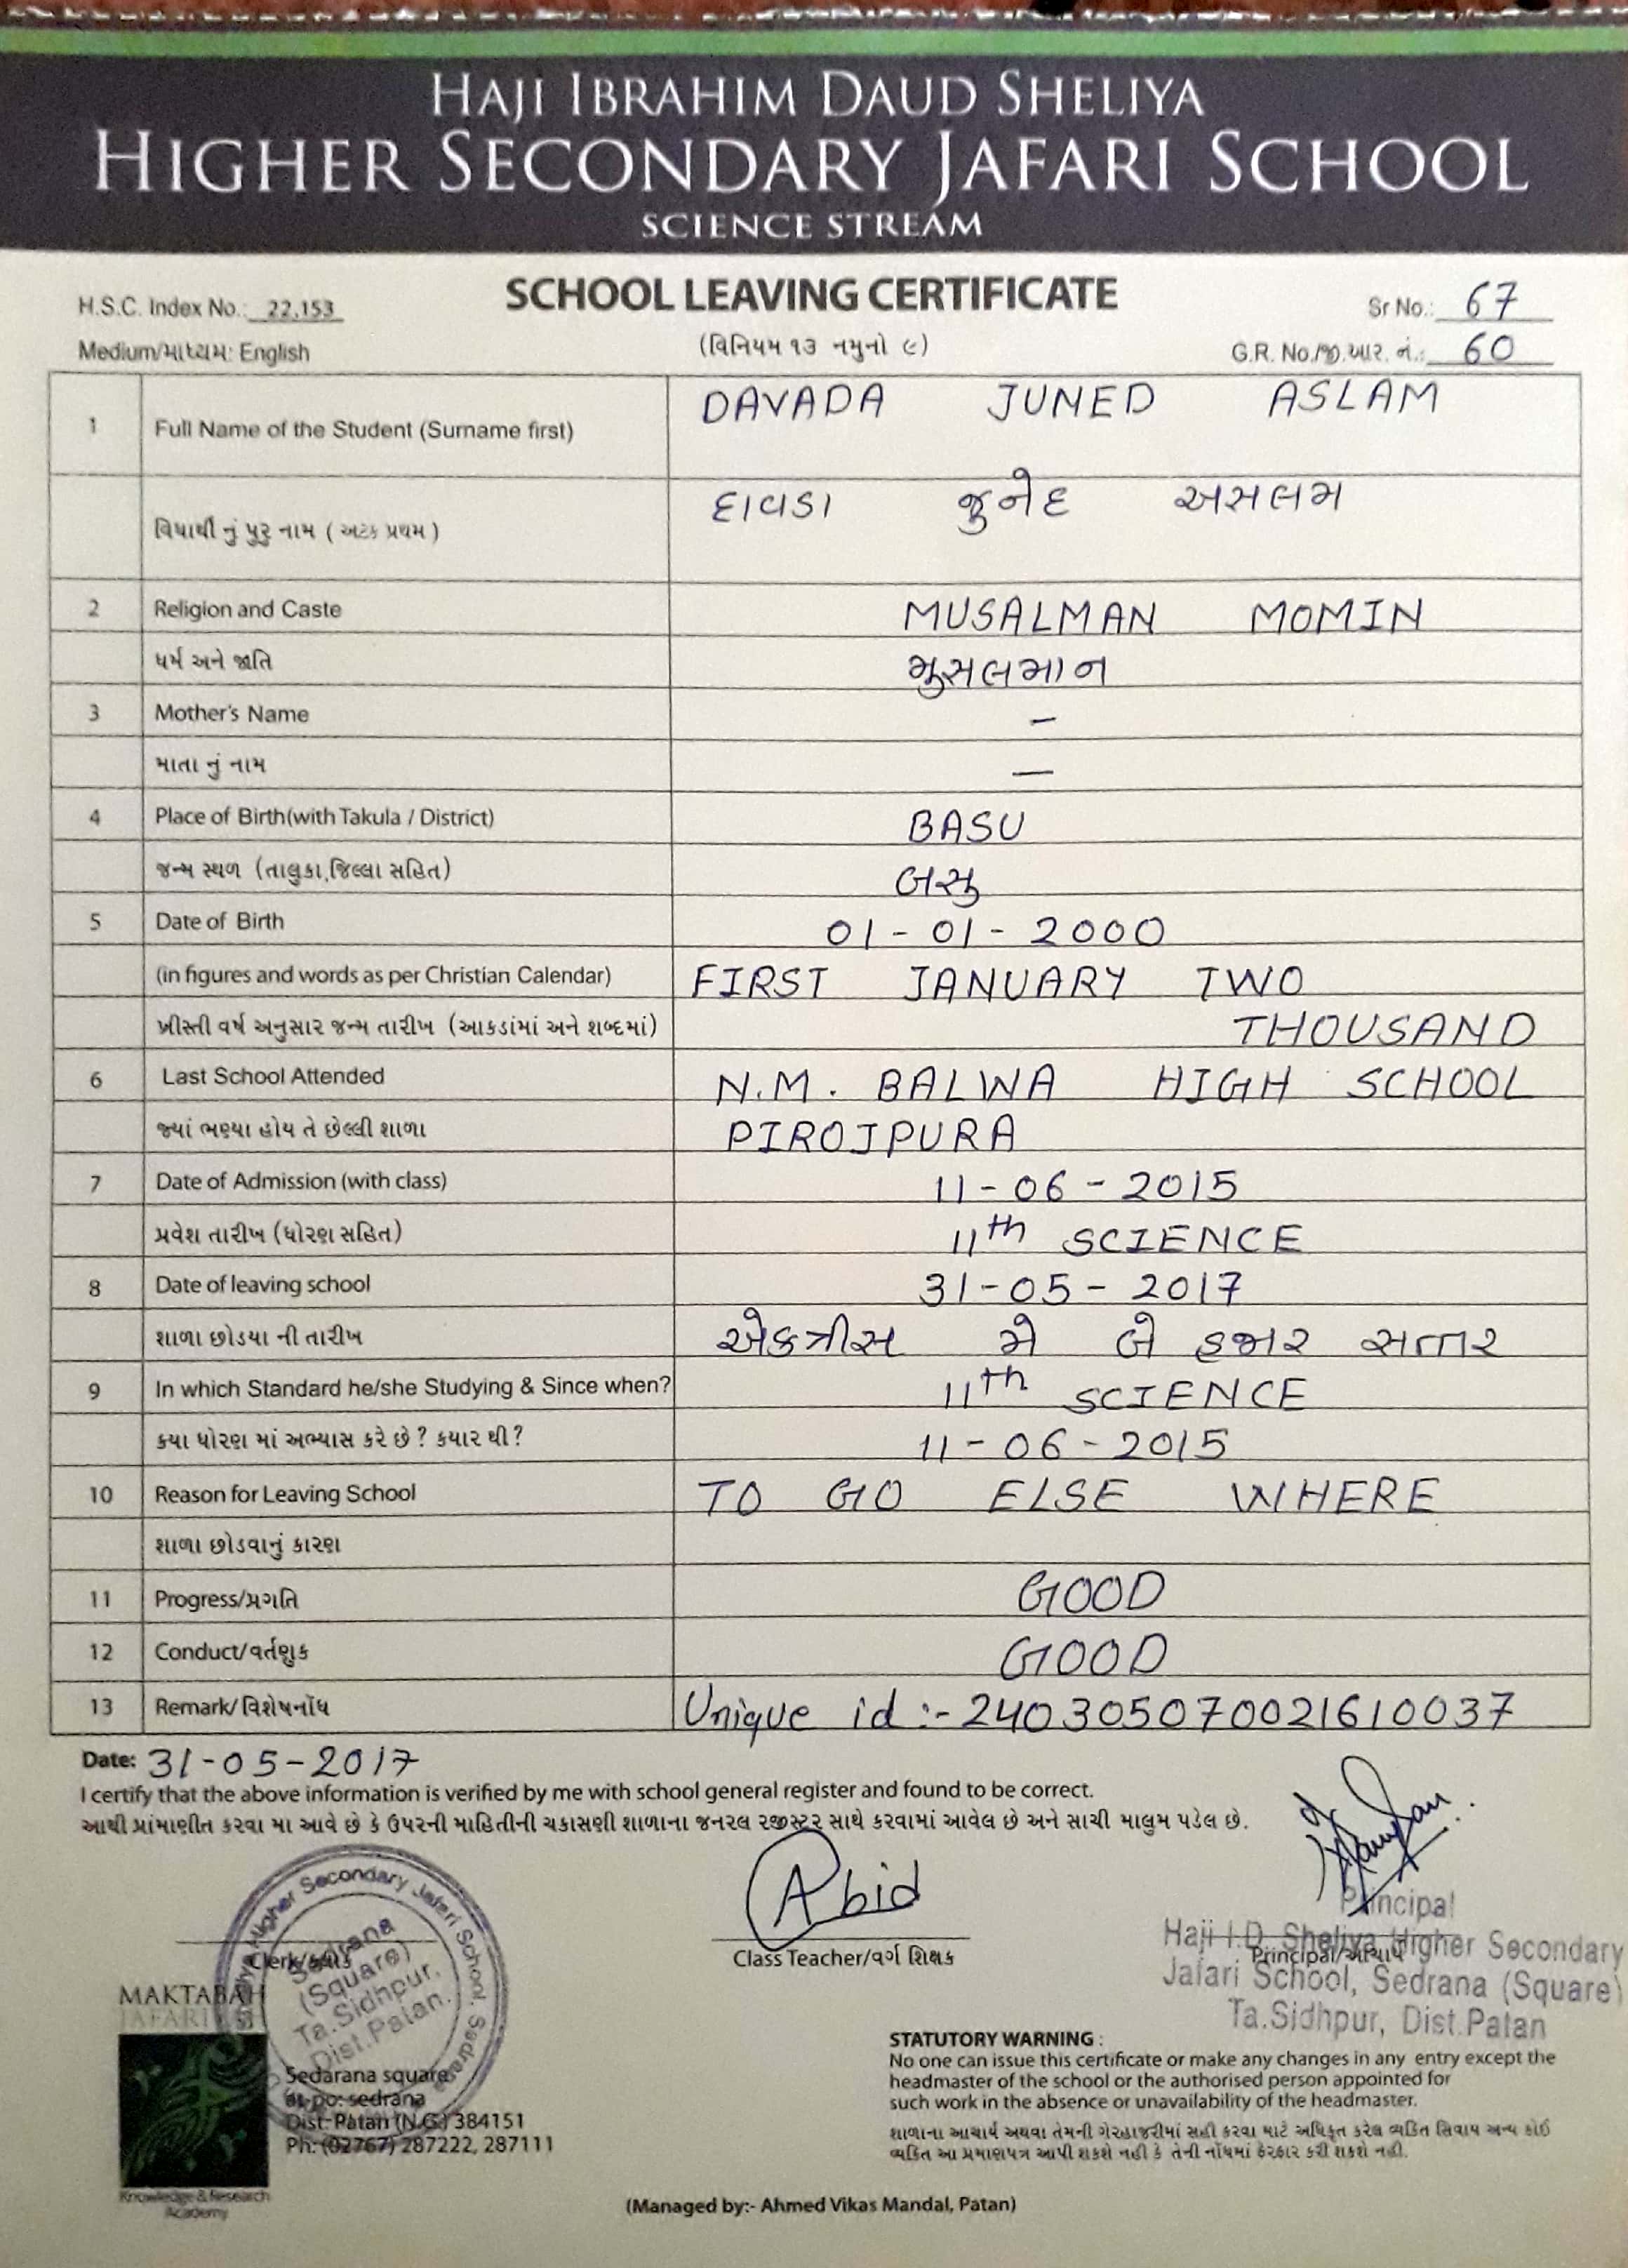 HAJI IBRAHIM DAUD SHELIYA
HIGHER SECONDARY JAFARI SCHOOL
SCIENCE STREAM
SCHOOL LEAVING CERTIFICATE
H.S.C. Index No.: 22,153
Sr No.: 67
(વિનિયમ ૧૩ નમુનો ૯)
Medium/માધ્યમ: English
G.R. No./જી.આર. નં.: 60
1 Full Name of the Student (Surname first) DAVADA JUNED ASLAM
વિધાર્થી નું પુરુ નામ ( અટક પ્રથમ ) દાવડા જુનેદ અસલમ
2 Religion and Caste MUSALMAN MOMIN
ધર્મ અને જાતિ મુસલમાન
3 Mother's Name –
માતા નું નામ —
4 Place of Birth(with Takula / District) BASU
જન્મ સ્થળ (તાલુકા,જિલ્લા સહિત) બસુ
5 Date of Birth 01-01-2000
(in figures and words as per Christian Calendar) FIRST JANUARY TWO
ખ્રીસ્તી વર્ષ અનુસાર જન્મ તારીખ (આકડાંમાં અને શબ્દમાં) THOUSAND
6 Last School Attended N.M. BALWA HIGH SCHOOL
જ્યાં ભણ્યા હોય તે છેલ્લી શાળા PIROJPURA
7 Date of Admission (with class) 11-06-2015
પ્રવેશ તારીખ (ધોરણ સહિત) 11th SCIENCE
8 Date of leaving school 31-05-2017
શાળા છોડયા ની તારીખ એકત્રીસ મે બે હજાર સત્તર
9 In which Standard he/she Studying & Since when? 11th SCIENCE
કયા ધોરણ માં અભ્યાસ કરે છે? કયાર થી? 11-06-2015
10 Reason for Leaving School TO GO ELSE WHERE
શાળા છોડવાનું કારણ
11 Progress/પ્રગતિ GOOD
12 Conduct/વર્તણુક GOOD
13 Remark/વિશેષનોંધ Unique id :- 240305070021610037
Date: 31-05-2017
I certify that the above information is verified by me with school general register and found to be correct.
આથી પ્રાંમાણીત કરવા મા આવે છે કે ઉપરની માહિતીની ચકાસણી શાળાના જનરલ રજીસ્ટર સાથે કરવામાં આવેલ છે અને સાચી માલુમ પડેલ છે.
Higher Secondary Jafari School.
Sedrana
(Square)
Ta.Sidhpur,
Dist.Patan.
Clerk/કલાર્ક
Abid
Class Teacher/વર્ગ શિક્ષક
Principal
Haji I.D. Sheliya Higher Secondary
Principal/આચાર્ય
Jafari School, Sedrana (Square)
Ta.Sidhpur, Dist.Patan
MAKTABAH
JAFARI
Knowledge & Research
Academy
Sedarana square
at-po: sedrana
Dist- Patan (N.G.) 384151
Ph: (02767) 287222, 287111
STATUTORY WARNING :
No one can issue this certificate or make any changes in any entry except the
headmaster of the school or the authorised person appointed for
such work in the absence or unavailability of the headmaster.
શાળાના આચાર્ય અથવા તેમની ગેરહાજરીમાં સહી કરવા માટે અધિકૃત કરેલ વ્યકિત સિવાય અન્ય કોઈ
વ્યકિત આ પ્રમાણપત્ર આપી શકશે નહી કે તેની નોંધમાં ફેરફાર કરી શકશે નહી.
(Managed by:- Ahmed Vikas Mandal, Patan)